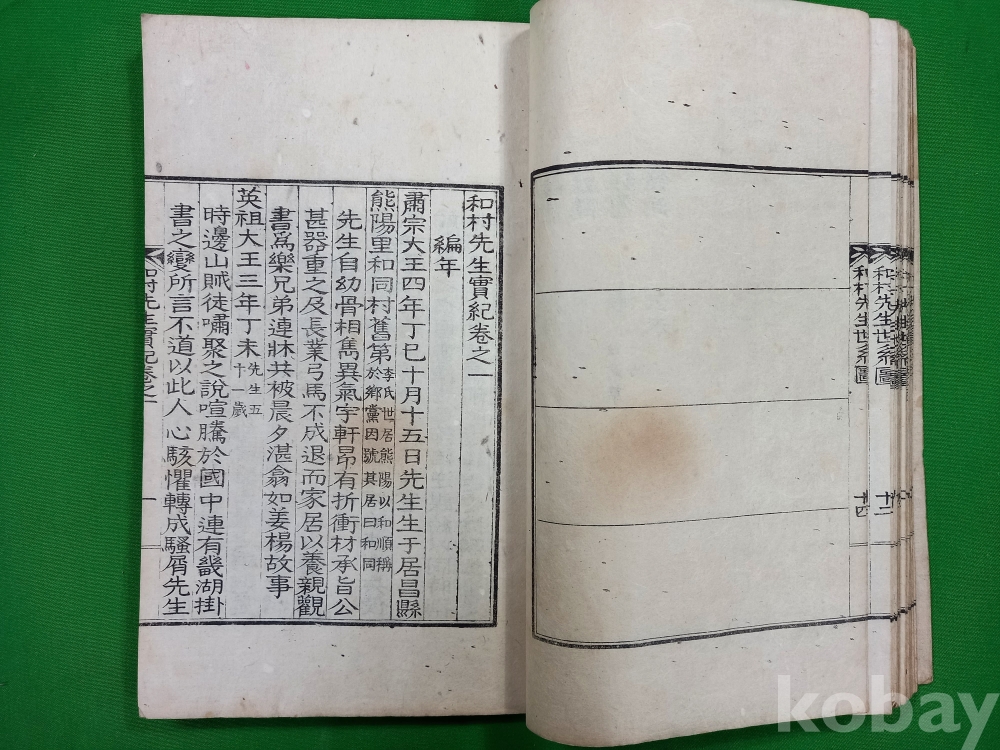 和村先生世系圖
十四
和村先生世系圖
十三
和村先生實紀卷之一
編年
肅宗大王四年丁巳十月十五日先生生于居昌縣
熊陽里和同村舊第李氏世居熊陽以和順稱於鄕黨因號其居曰和同
先生自幼骨相雋異氣宇軒昂有折衝材承旨公
甚器重之及長業弓馬不成退而家居以養親觀
書爲樂兄弟連牀共被晨夕湛翕如姜楊故事
英祖大王三年丁未先生五十一歲
時邊山賊徒嘯聚之說喧騰於國中連有畿湖掛
書之變所言不道以此人心駭懼轉成騷屑先生
和村先生實紀卷之一
一
kobay